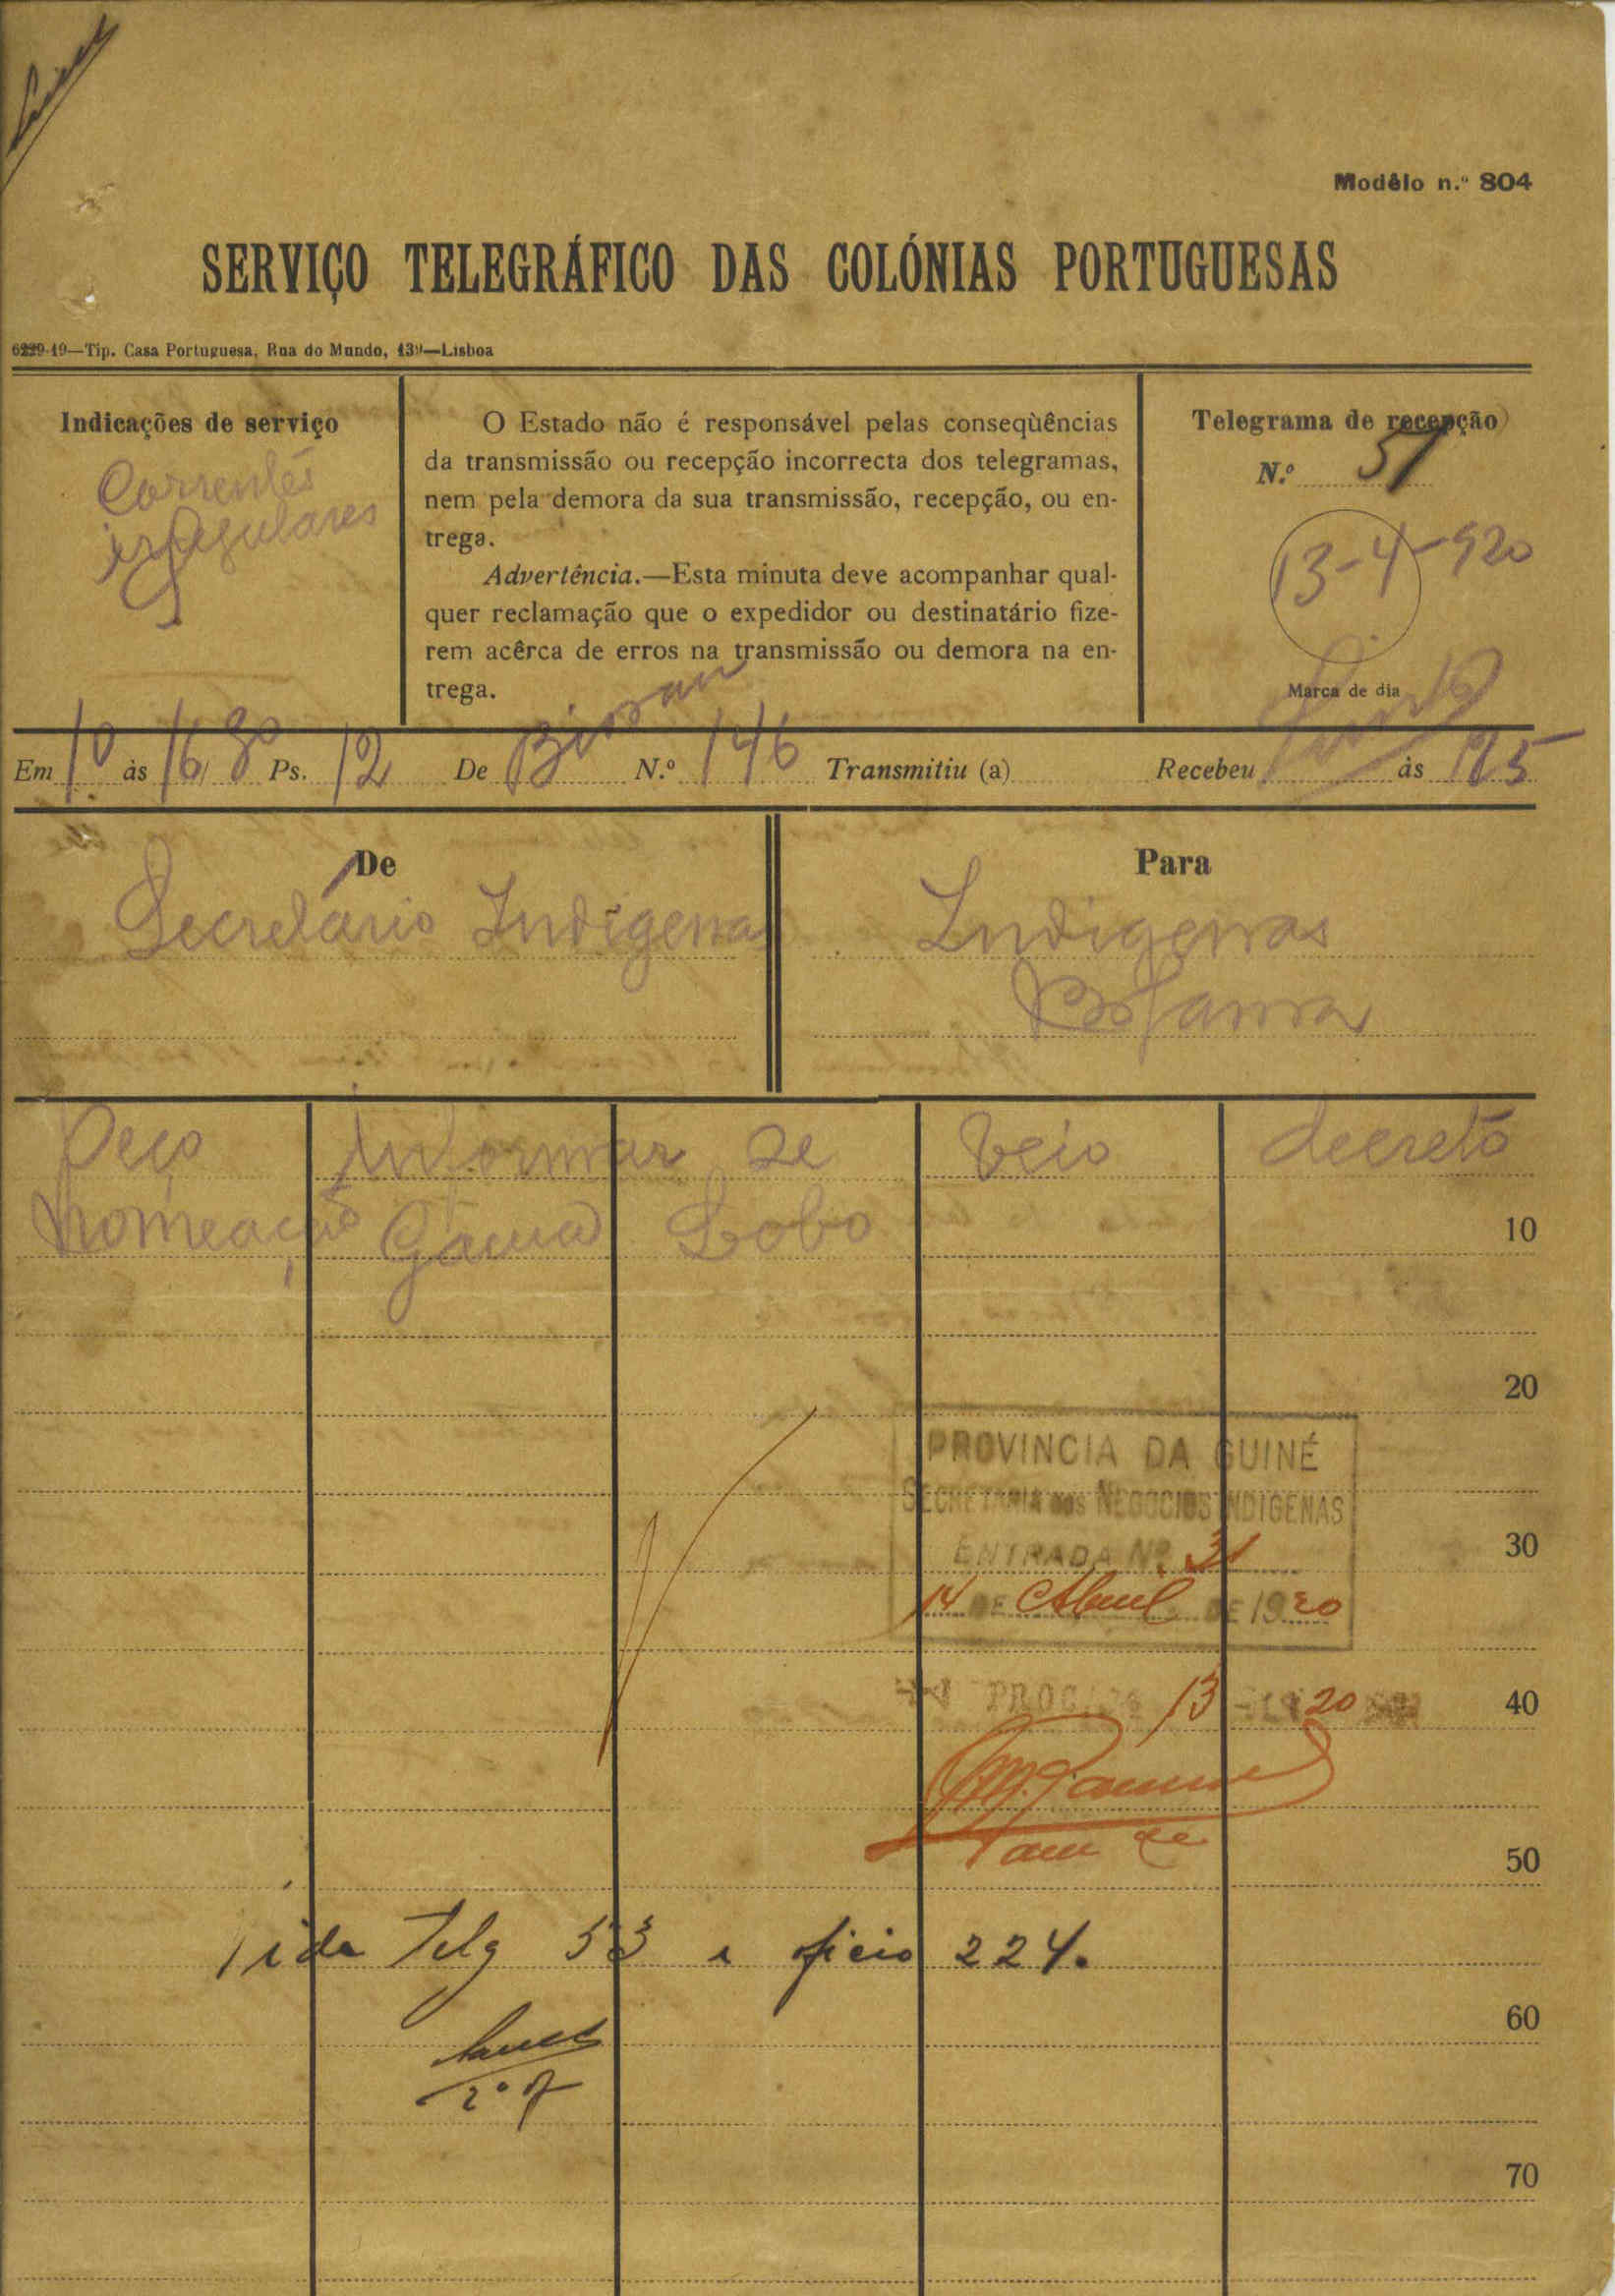 Modêlo n.º 804
SERVIÇO TELEGRÁFICO DAS COLÓNIAS PORTUGUESAS
6229-19—Tip. Casa Portuguesa, Rua do Mundo, 139—Lisboa
Indicações de serviço
Correntes
irregulares
O Estado não é responsável pelas conseqùências
da transmissão ou recepção incorrecta dos telegramas,
nem pela demora da sua transmissão, recepção, ou en-
trega.
Advertência.—Esta minuta deve acompanhar qual-
quer reclamação que o expedidor ou destinatário fize-
rem acêrca de erros na transmissão ou demora na en-
trega.
Telegrama de recepção
N.º 51
13-4-920
Marca de dia
Em 10 às 16/ Ps. 12 De Bissau N.º 146 Transmitiu (a) Recebeu às
De
Secretário Indigena
Para
Indigenas
Bolama
Peço informar se veio decreto
nomeação Gama Lobo
10
20
PROVINCIA DA GUINÉ
SECRETARIA dos NEGOCIOS INDIGENAS
30
ENTRADA Nº 31
14 DE Abril DE 1920
40
PROC. 13 20
50
Vide Telg 53 e oficio 224.
60
2º of
70